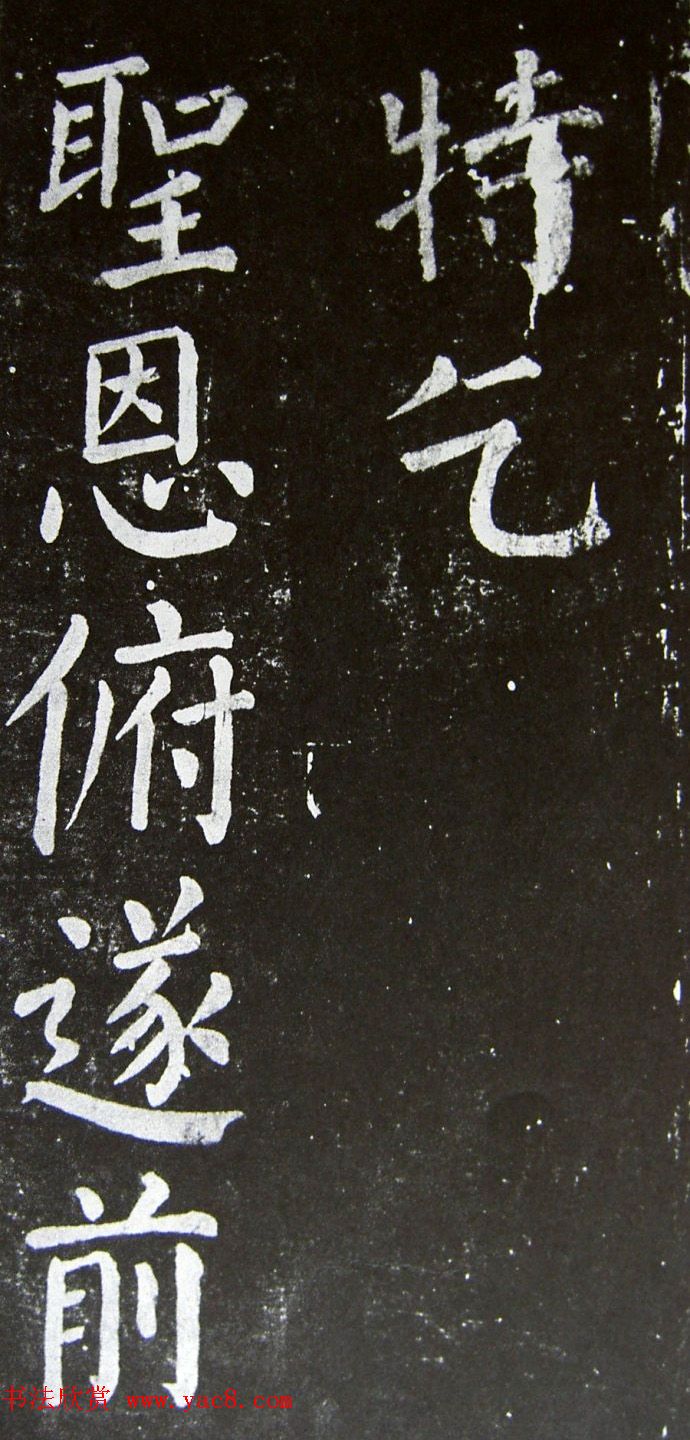 特乞
聖恩俯遂前
书法欣赏 www.yac8.com